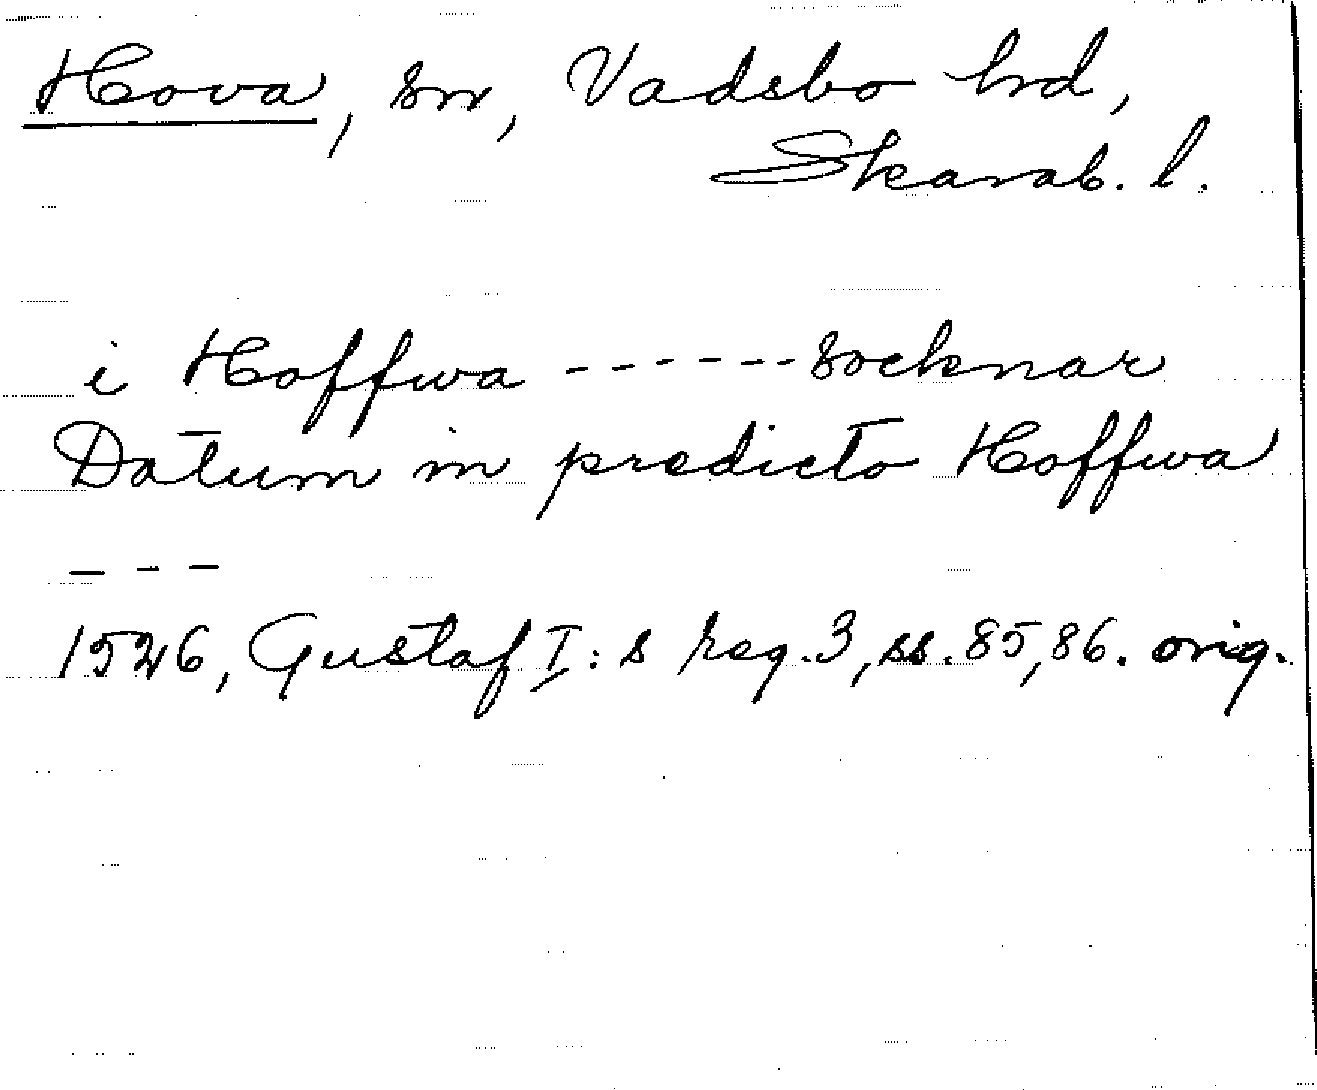 Hova, sn, Vadsbo hd,
Skarab. l.
i Hoffwa ------ socknar
Datum in predicto Hoffwa
---
1526, Gustaf I:s reg. 3, ss. 85, 86. orig.